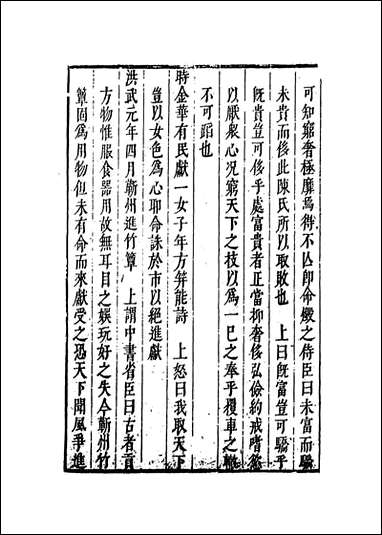 可知窮奢極靡焉得不亾卽命燬之侍臣曰未富而驕
未貴而侈此陳氏所以取敗也　上曰旣富豈可驕乎
旣貴豈可侈乎處富貴者正當抑奢侈弘儉約戒嗜慾
以厭衆心况窮天下之技以爲一己之奉乎覆車之轍
不可蹈也
時金華有民獻一女子年方笄能詩　上怒曰我取天下
豈以女色爲心耶命誅於市以絕進獻
洪武元年四月蘄州進竹簟　上謂中書省臣曰古者貢
方物惟服食器用故無耳目之娛玩好之失今蘄州竹
簟固爲用物但未有命而來獻受之恐天下聞風爭進